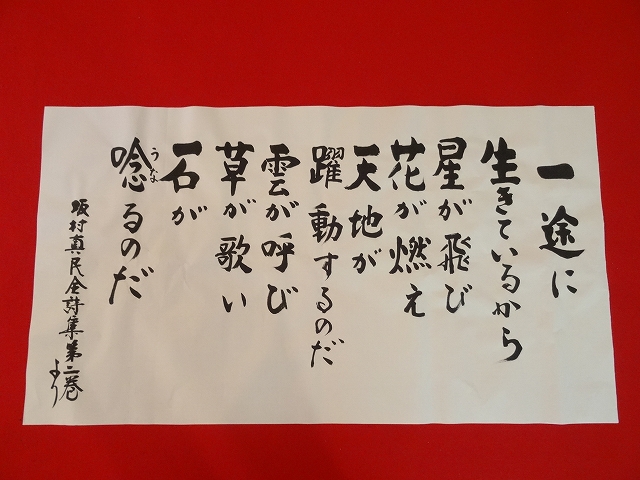 一途に
生きているから
星が飛び
花が燃え
天地が
躍動するのだ
雲が呼び
草が歌い
石が
唸るのだ
うな
坂村真民全詩集第二巻
より